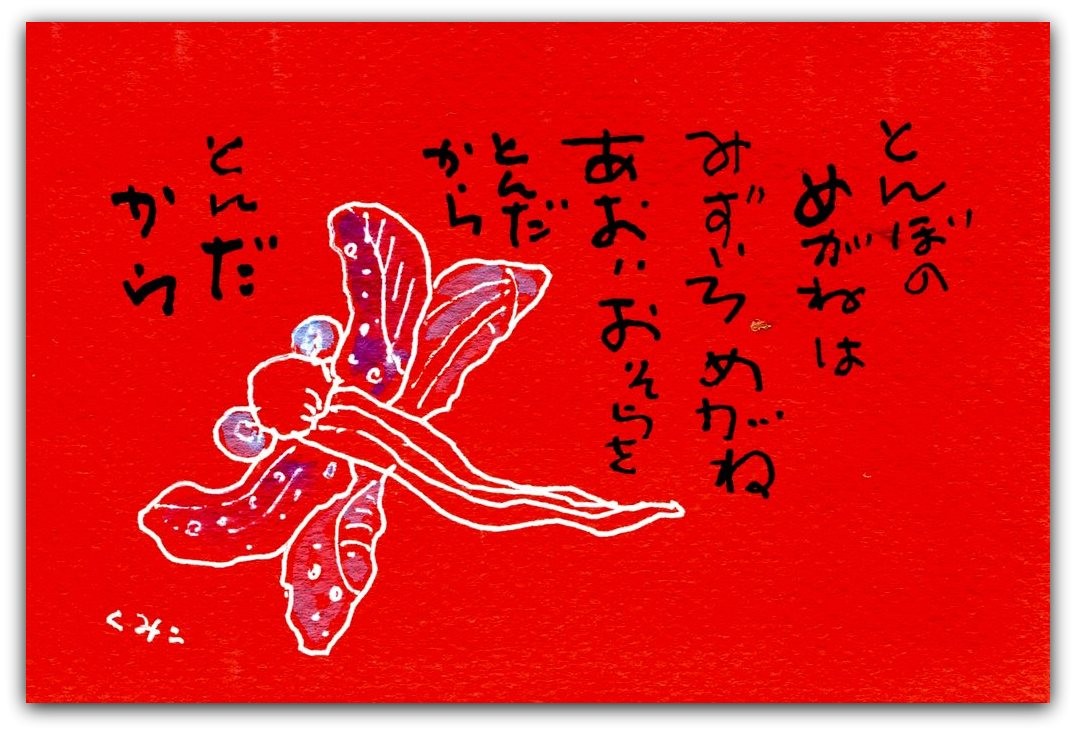 とんぼの
めがねは
みずいろめがね
あおいおそらを
とんだ
から
とんだ
から
くみこ